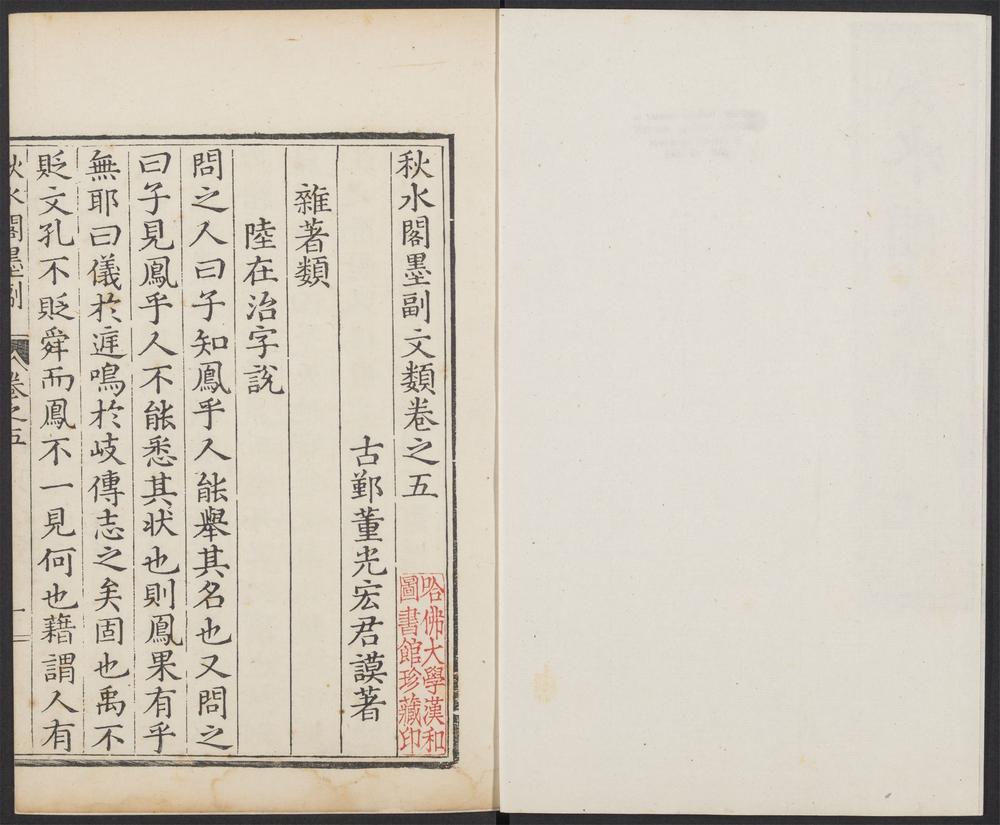 秋水閣墨副文類卷之五
古鄞董光宏君謨著
雜著類
陸在治字說
問之人曰子知鳳乎人能舉其名也又問之
曰子見鳳乎人不能悉其狀也則鳳果有乎
無耶曰儀於庭鳴於岐傳志之矣固也禹不
貶文孔不貶舜而鳳不一見何也藉謂人有
秋水閣墨副
卷之五
一
哈佛大學漢和
圖書館珍藏印